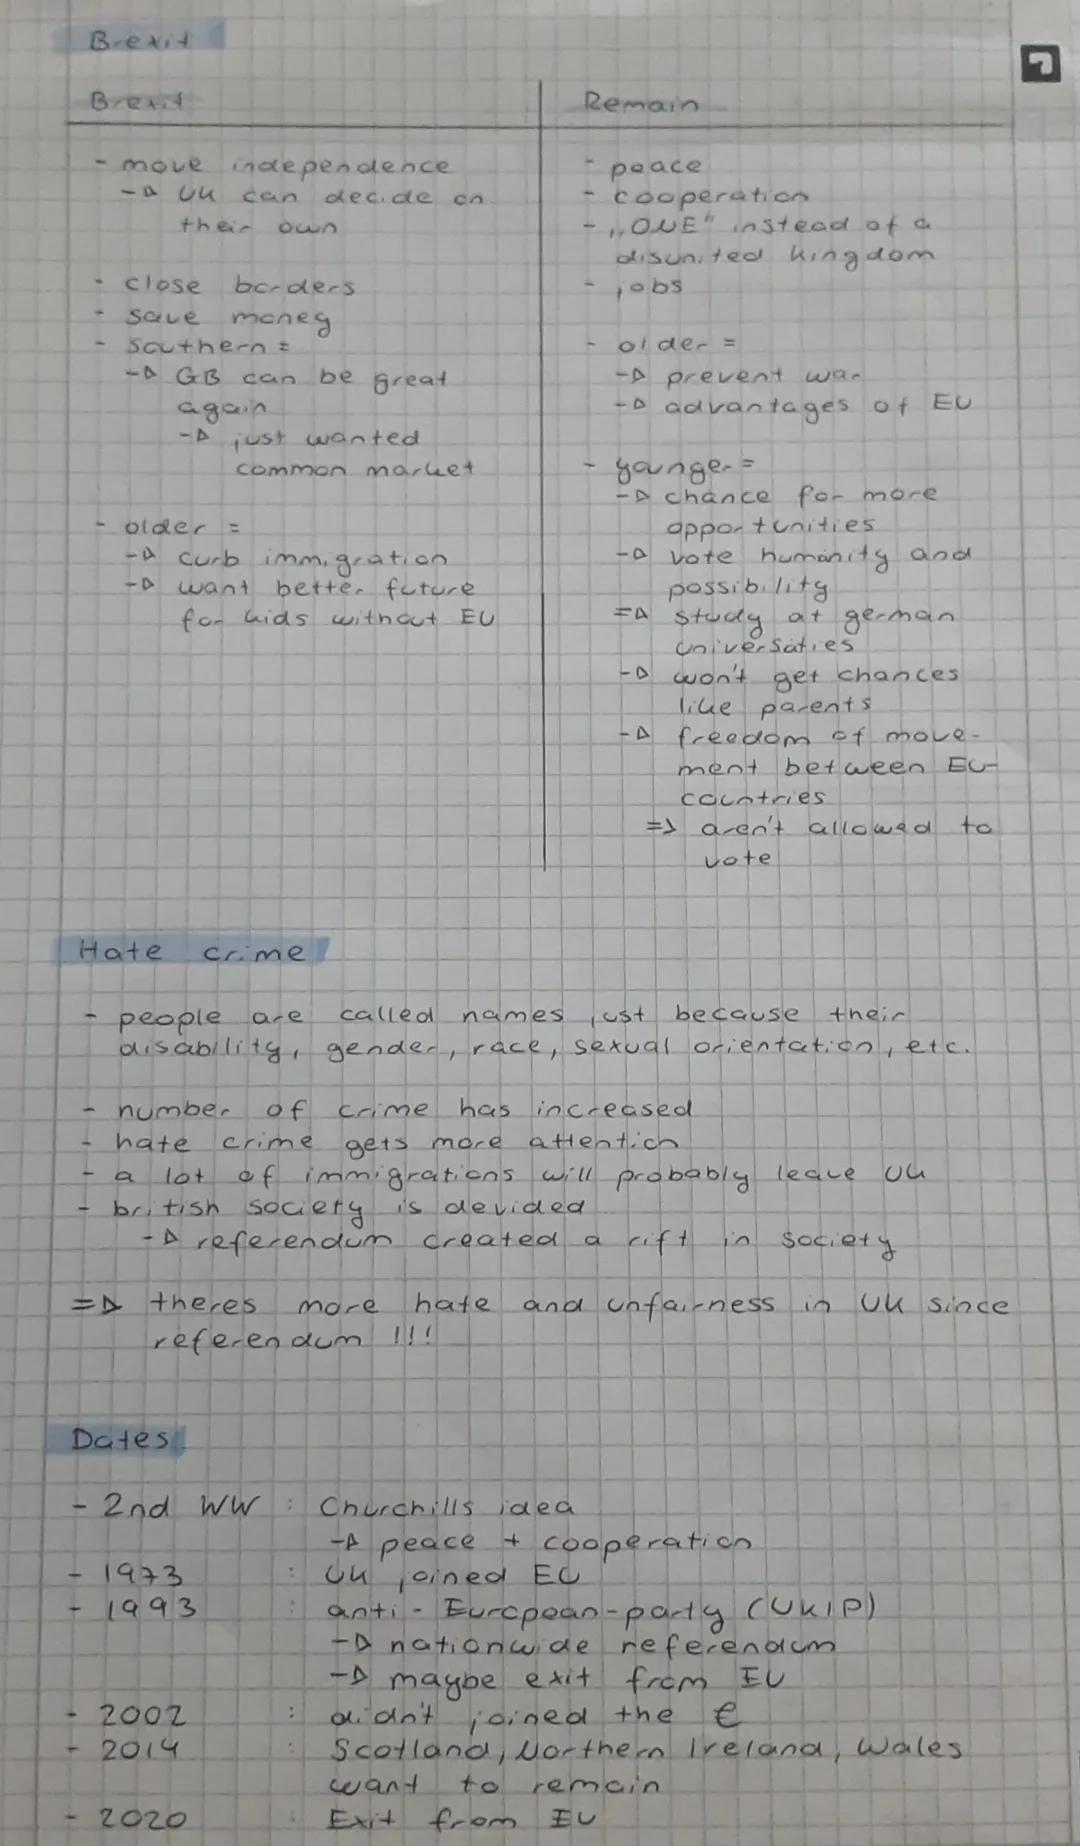 Brexit
Brexit
- move independence
-▷ UK can decide on
their own
- close borders
- save money
- Southern =
-▷ GB can be great
again
-▷ just wanted
common market
- older =
-▷ curb immigration
-▷ want better future
for kids without EU
Remain
- peace
- cooperation
- „ONE" instead of a
disunited kingdom
- jobs
- older =
-▷ prevent war
-▷ advantages of EU
- younger =
-▷ chance for more
opportunities
-▷ vote humanity and
possibility
=▷ study at german
universaties
-▷ won't get chances
like parents
-▷ freedom of move-
ment between EU-
countries
=> aren't allowed to
vote
Hate crime
- people are called names just because their
disability, gender, race, sexual orientation, etc.
- number of crime has increased
- hate crime gets more attention
- a lot of immigrations will probably leave UK
- british society is devided
-▷ referendum created a rift in society
=▷ theres more hate and unfairness in UK since
referendum !!!
Dates
- 2nd WW : Churchills idea
-▷ peace + cooperation
- 1973 : UK joined EU
- 1993 : anti-European-party (UKIP)
-▷ nationwide referendum
-▷ maybe exit from EU
- 2002 : didn't joined the €
- 2014 : Scotland, Northern Ireland, Wales
want to remain
- 2020 : Exit from EU